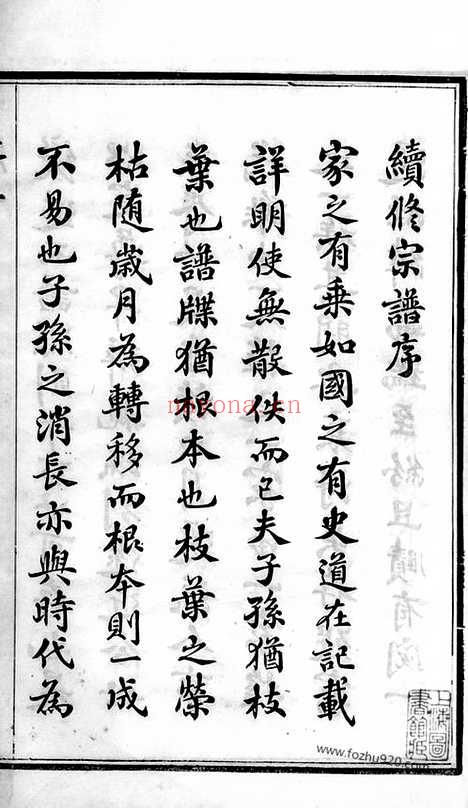 續修宗譜序
家之有乘如國之有史道在記載
詳明使無散佚而已夫子孫猶枝
葉也譜牒猶根本也枝葉之榮
枯随歲月為轉移而根本則一成
不易也子孫之消長亦與時代為
nayona.cn
上海圖
書館藏
www.fozhu920.com